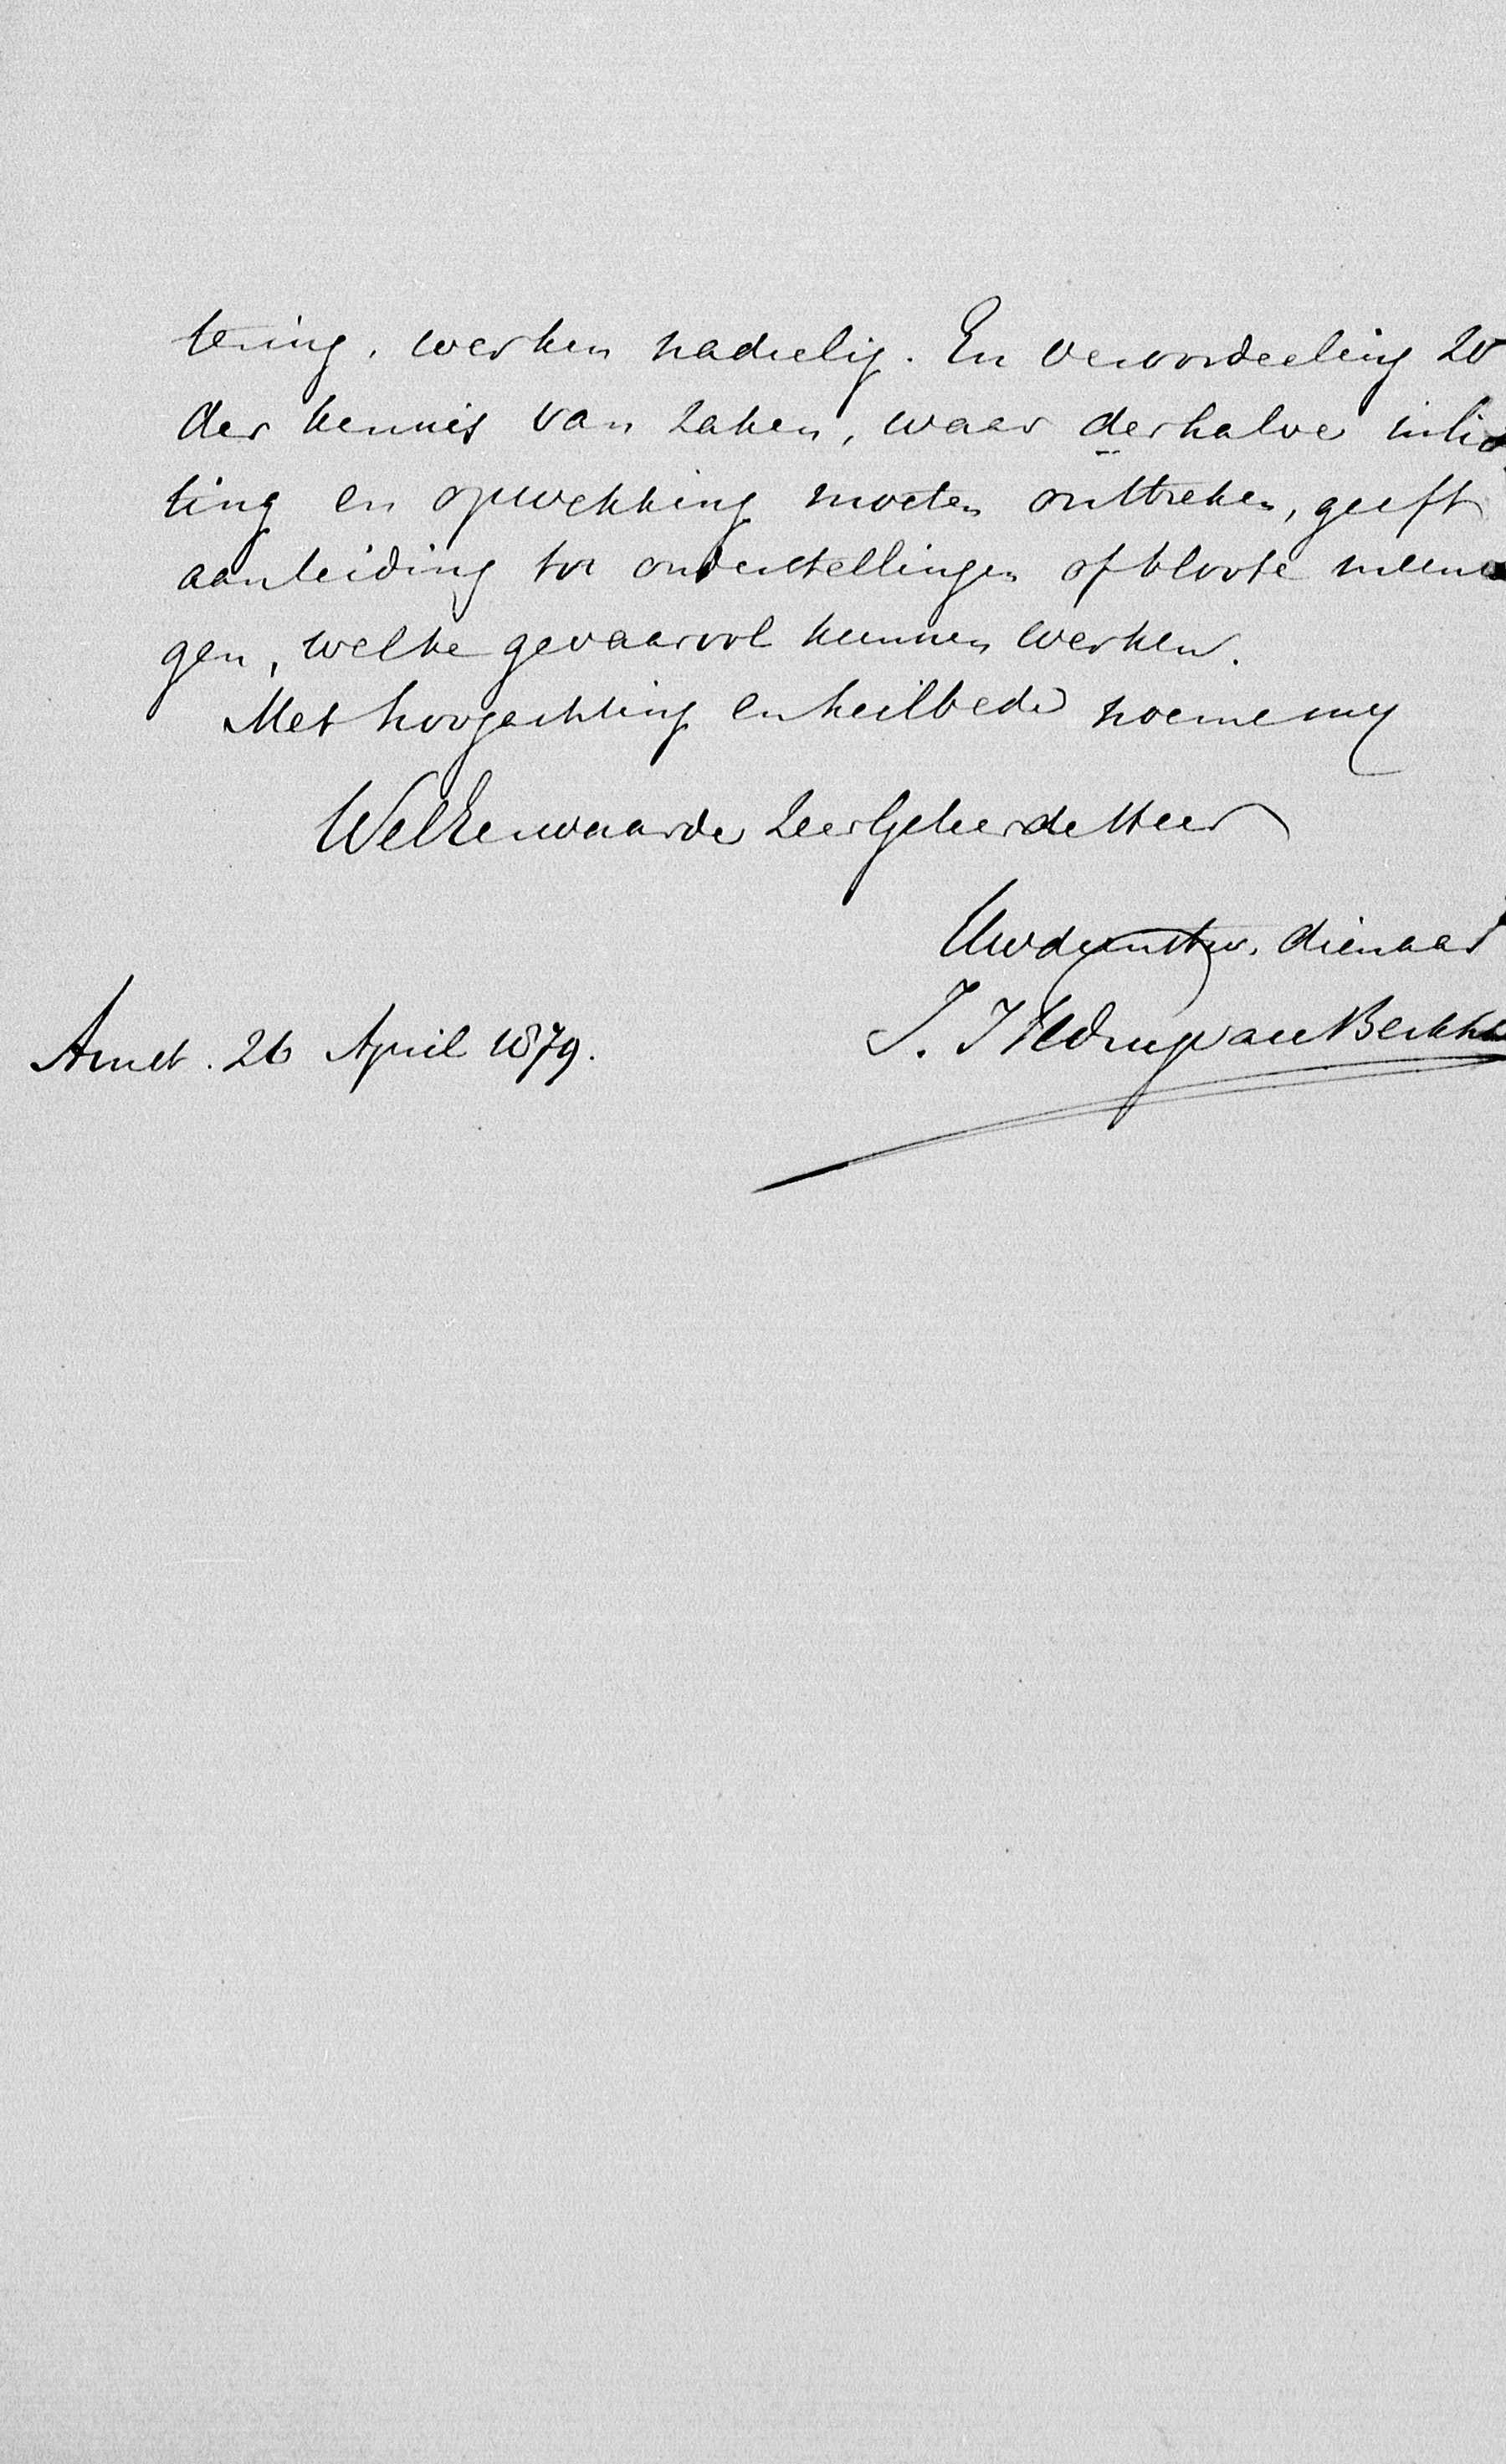 tering, werken nadeelig. En veroordeeling zo
der kennis van zaken, waar derhalve inlich
ting en opwekking moeten ontbreken, geeft
aanleiding tot onderstellingen of bloote meenin
gen, welke gevaarvol kunnen werken.
Met hoogachting en heilbede noeme mij
WelEerwaarde ZeerGeleerde Heer
Uwdienstw. dienaar
Amst. 26 April 1879.
J. van Berkh